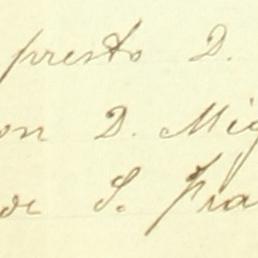 presto D.
on D. Mig
de S. Fra